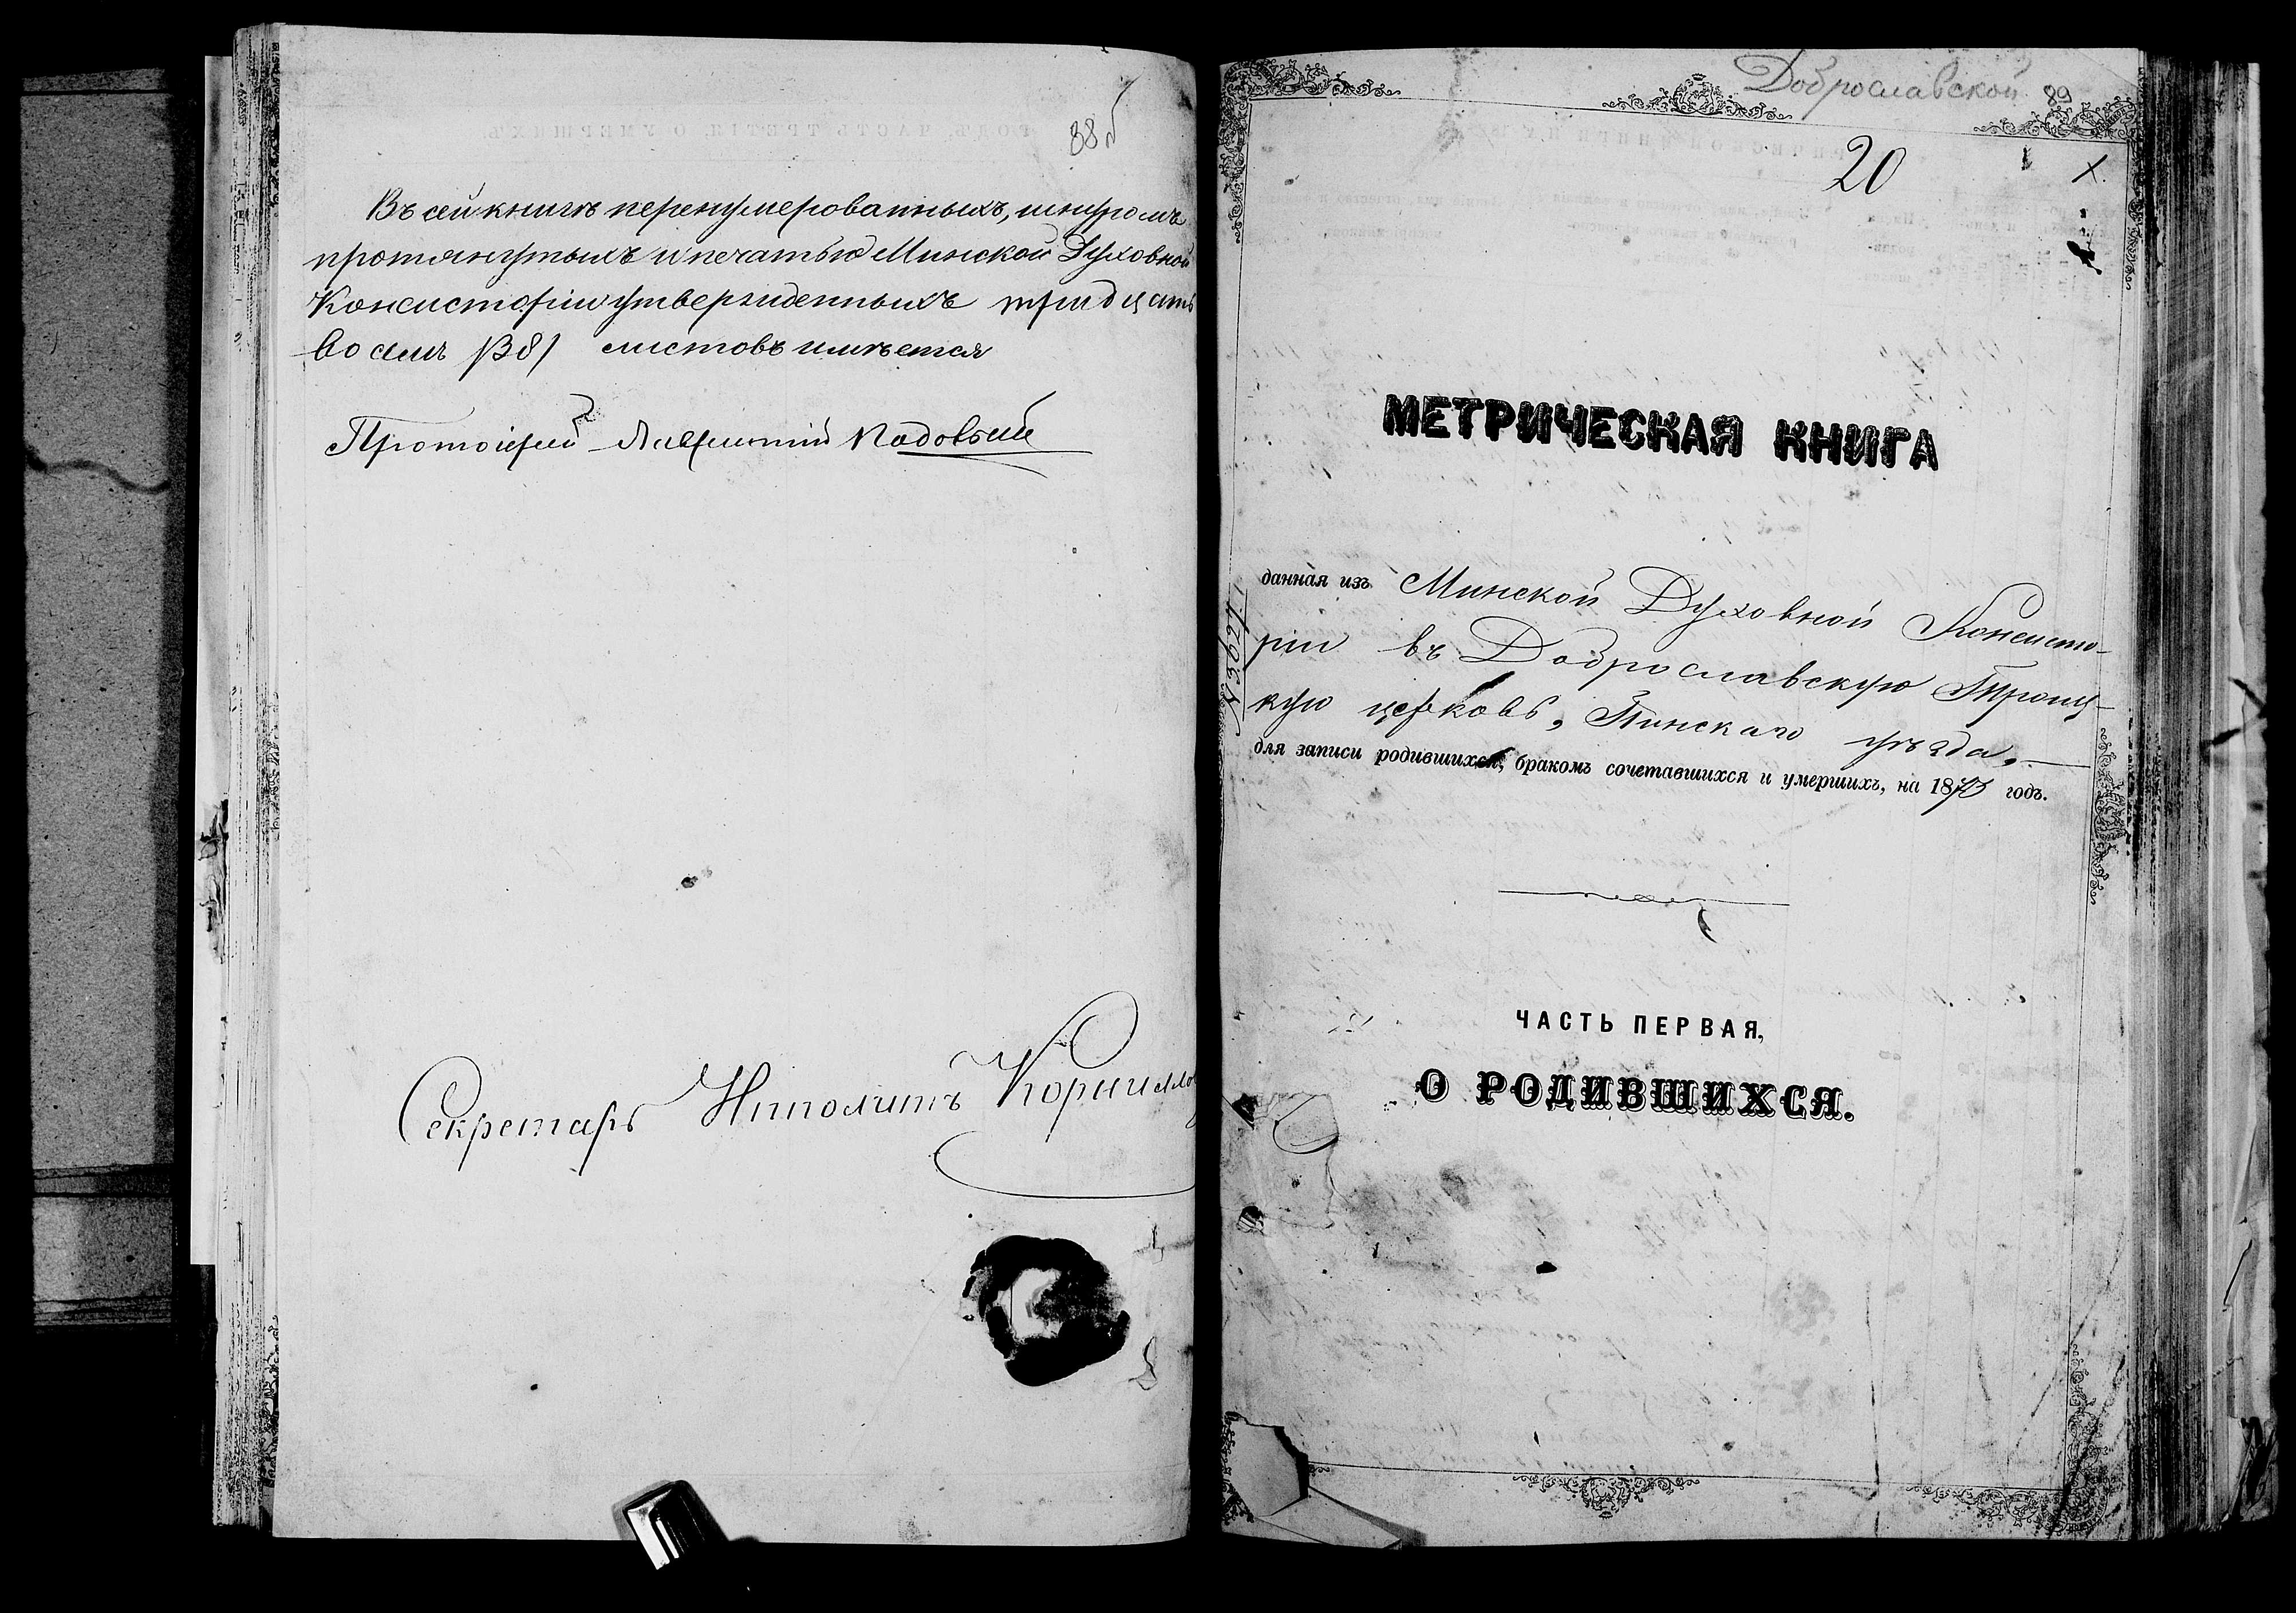 88б
Въ сей книгѣ перенумерованныхъ, шнуромъ
протянутыхъ и печатью Минской Духовной
Консисторіи утвержденныхъ тридцать
восемь /38/ листовъ имѣется
Протоіерей
Секретарь Ипполитъ
Доброславской 89
20
МЕТРИЧЕСКАЯ КНИГА
данная изъ Минской Духовной Консисто-
ріи въ Доброславскую Троиц-
кую церковь, Пинскаго уѣзда,
для записи родившихся, бракомъ сочетавшихся и умершихъ, на 1873 годъ.
ЧАСТЬ ПЕРВАЯ,
О РОДИВШИХСЯ.